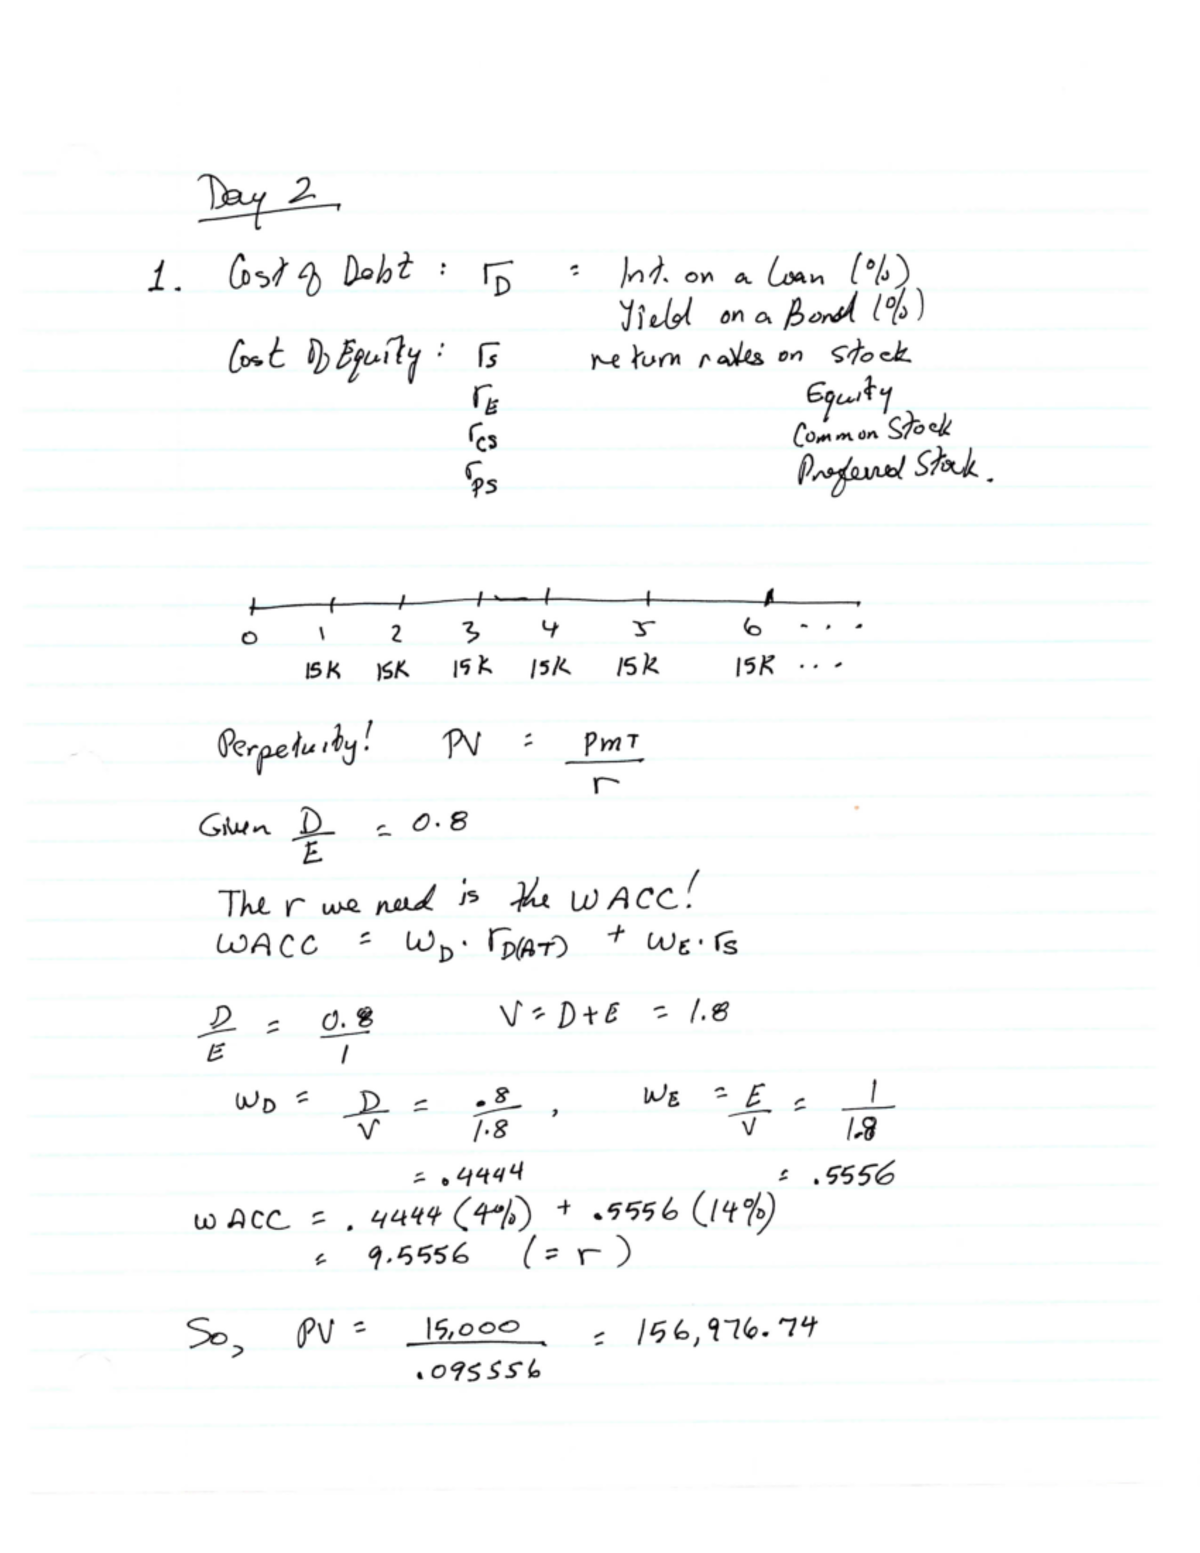 Day 2
1. Cost of Debt : rD = Int. on a Loan (%)
Yield on a Bond (%)
Cost of Equity : rs return rates on stock
rE Equity
rcs Common Stock
rps Preferred Stock.
0 1 2 3 4 5 6 . . .
15K 15K 15K 15K 15K 15K . . .
Perpetuity! PV = PMT / r
Given D/E = 0.8
The r we need is the WACC!
WACC = WD · rD(AT) + WE · rs
D/E = 0.8/1 V = D+E = 1.8
WD = D/V = .8/1.8 , WE = E/V = 1/1.8
= .4444 = .5556
WACC = .4444 (4%) + .5556 (14%)
= 9.5556 (= r)
So, PV = 15,000 / .095556 = 156,976.74